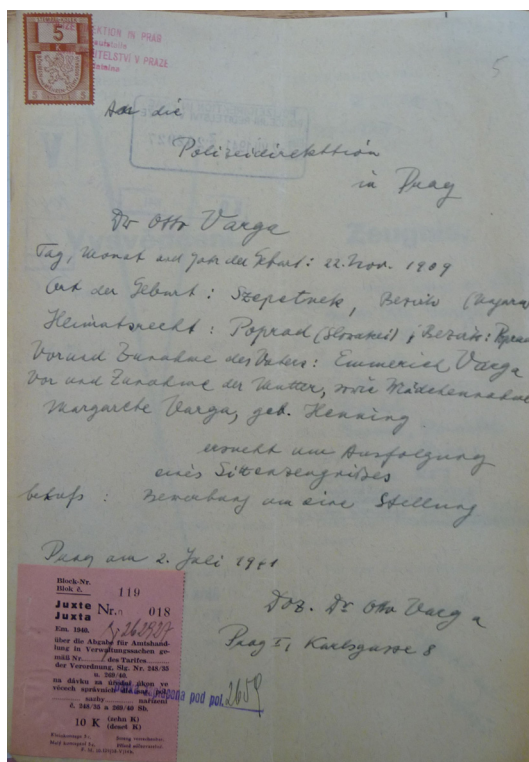 5
K
5 5
DIREKTION IN PRAG
ITELSTVÍ V PRAZE
5
An die
Polizeidirektion
in Prag
Dr Otto Varga
Tag, Monat und Jahr der Geburt: 22. Nov. 1909
Ort der Geburt: Szepetnek, Bezirk (Ungarn
Heimatsrecht: Poprad (Slovakei); Bezirk: Poprad
Vor und Zunahme des Vaters: Emmerich Varga
Vor und Zunahme der Mutter, sowie Mädchenname
Margarete Varga, geb. Henning
ersucht um Ausfolgung
eines Sittenzeugnisses
behufs: Bewerbung um eine Stellung
Prag am 2. Juli 1941
Doz. Dr Otto Varga
Prag I, Karlsgasse 8
Block-Nr.
Blok č. 119
Juxte Nr. 018
Juxta
Em. 1940.
über die Abgabe für Amtshand-
lung in Verwaltungssachen ge-
mäß Nr. des Tarifes
der Verordnung, Slg. Nr. 248/35
u. 268/40.
na dávku za úřední úkon ve
věcech správních dle pol.
sazby nařízení
č. 248/35 a 268/40 Sb.
10 K (zehn K)
(deset K)
pod pol. 2659